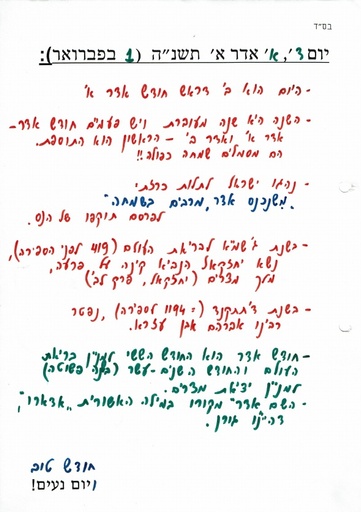 בס״ד
יום ד׳, א׳ אדר א׳ תשנ״ה (1 בפברואר):
- היום הוא ב׳ דראש חודש אדר א׳
- השנה היא שנה מעוברת ויש פעמיים חודש אדר -
אדר א׳ ואדר ב׳ - הראשון הוא התוספת.
הם מסמלים שמחה כפולה!!
- נהגו ישראל לתלות כרזת
״משנכנס אדר, מרבים בשמחה״
לפרסם תוקפו של הנס.
- בשנת ג׳שמ״א לבריאת העולם (419 לפני הספירה),
נשא יחזקאל הנביא קינה על פרעה,
מלך מצרים (יחזקאל, פרק לב׳)
- בשנת ד׳תתקנד (= 1194 לספירה), נפטר
רבינו אברהם אבן עזרא.
- חודש אדר הוא החודש הששי למנין בריאת
העולם והחודש השנים-עשר (בשנה פשוטה)
למנין יציאת מצרים.
- השם אדר מקורו במילה האשורית ״אדארו״,
דהיינו גורן.
חודש טוב
ויום נעים!